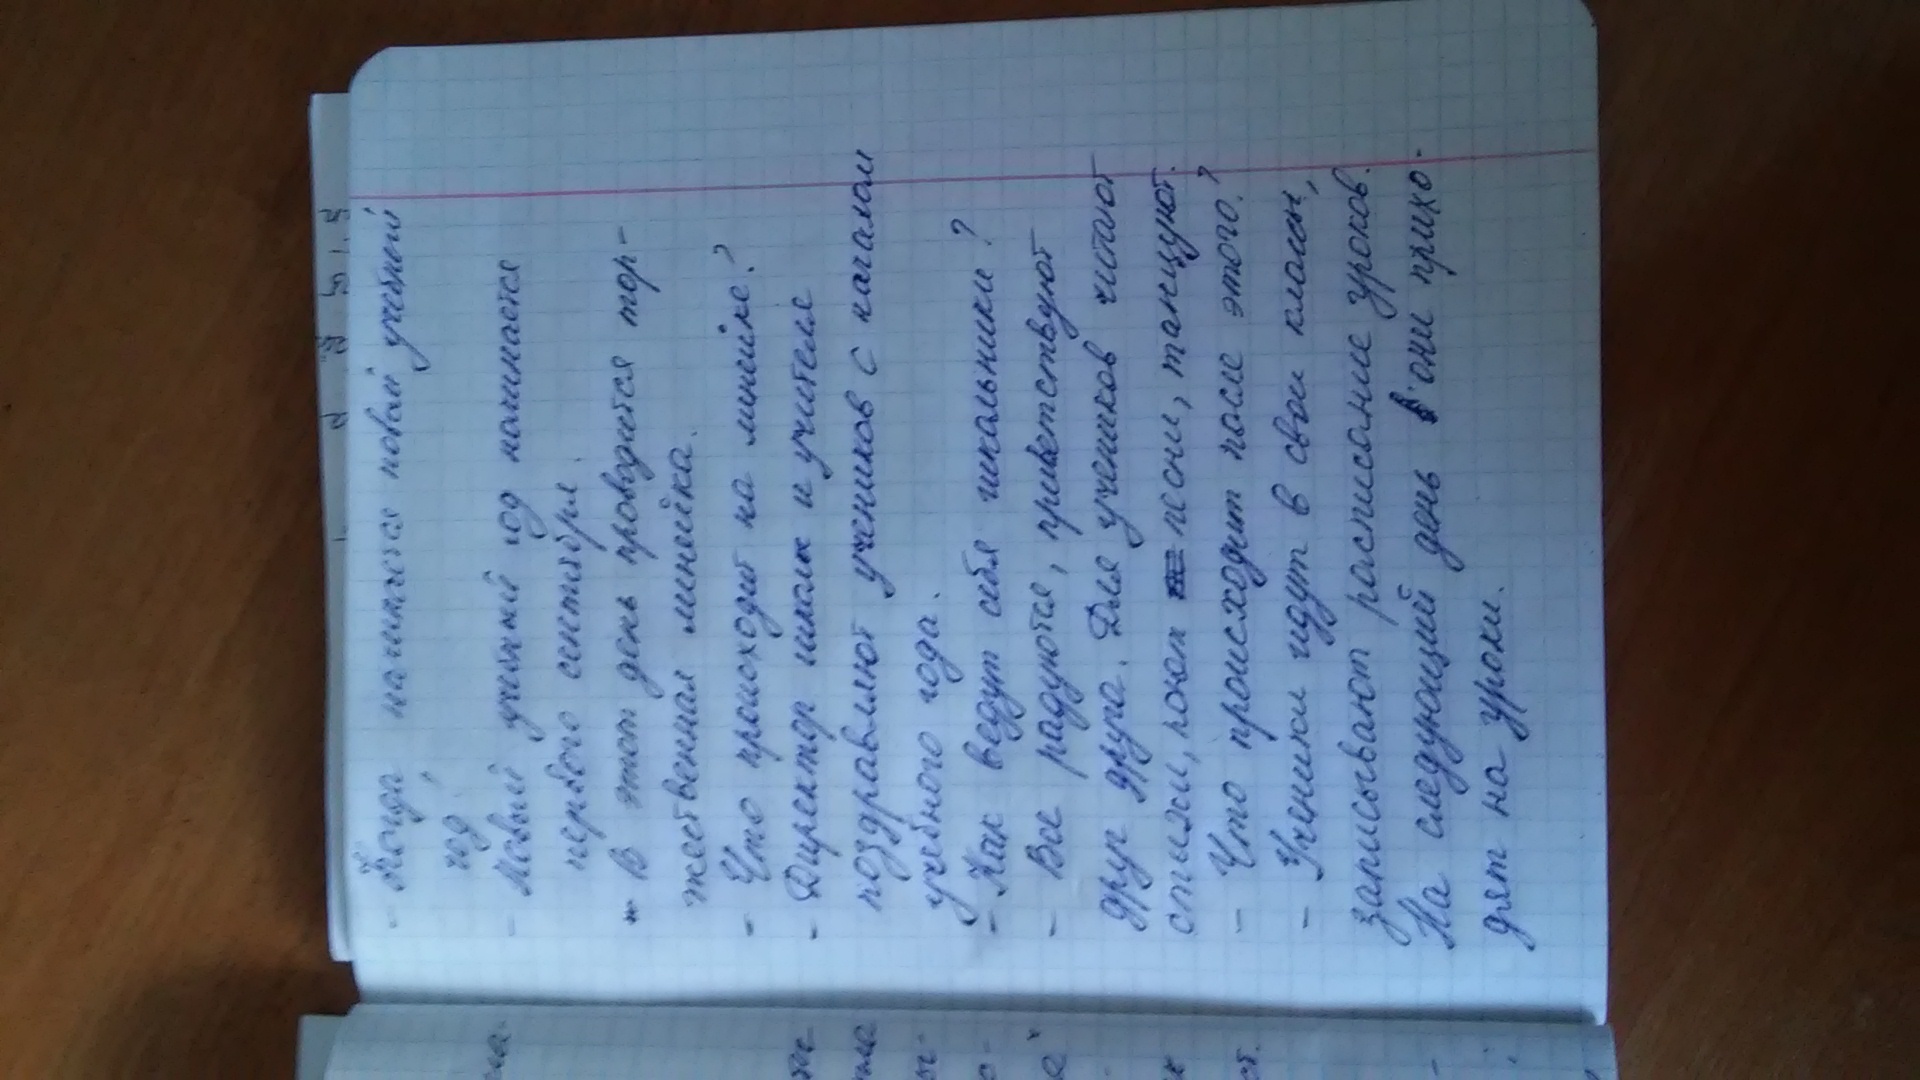 - Когда начинается новый учебный
год?
- Новый учебный год начинается
первого сентября.
- В этот день проводится тор-
жественная линейка.
- Что происходит на линейке?
- Директор школы и учителя
поздравляют учеников с началом
учебного года.
- Как ведут себя школьники?
- Все радуются, приветствуют
друг друга. Для учеников читают
стихи, поют песни, танцуют.
- Что происходит после этого?
- Ученики идут в свои классы,
записывают расписание уроков.
На следующий день они прихо-
дят на уроки.